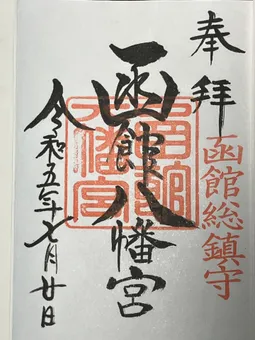 奉拝
函館総鎮守
函館八幡宮
令和五年七月廿日